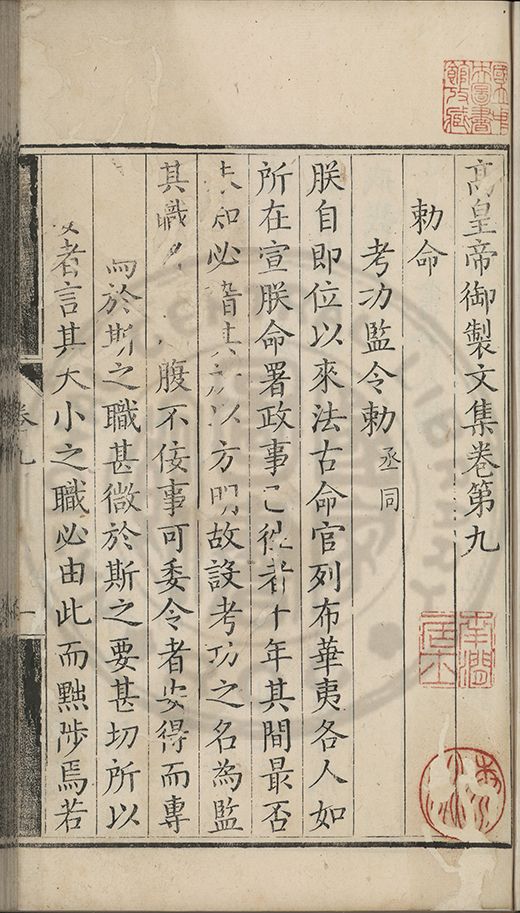 高皇帝御製文集卷第九
勅命
考功監令勅丞同
朕自即位以來法古命官列布華夷各人如
所在宣朕命署政事已從者十年其間最否
未知必稽其以方明故設考功之名為監
其職腹不佞事可委令者安得而專
為於斯之職甚微於斯之要甚切所以
者言其大小之職必由此而黜陟焉若
卷九
一
國立中央圖書館收藏
南潤居士